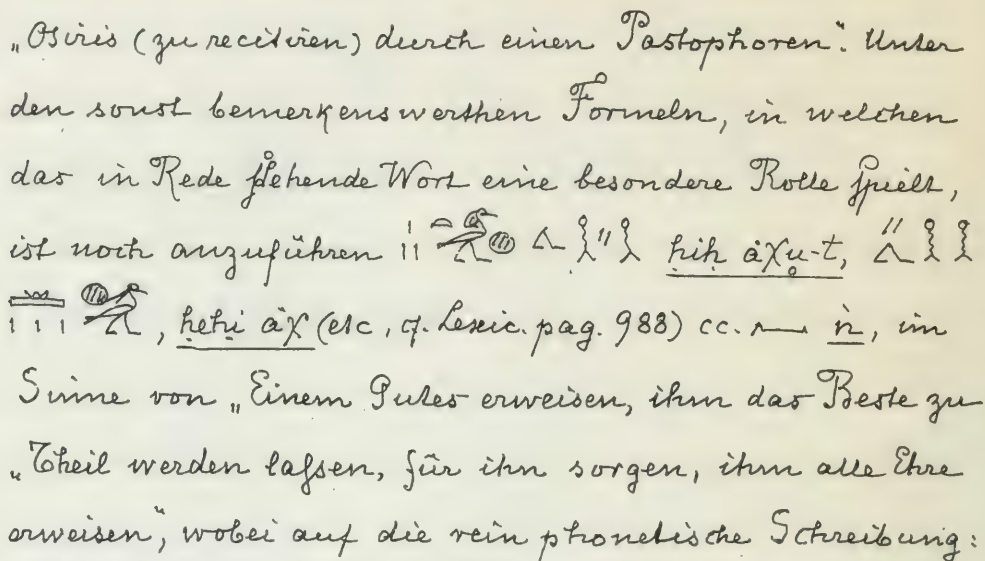 „Osiris (zu recitiren) durch einen Pastophoren“. Unter
den sonst bemerkenswerthen Formeln, in welchen
das in Rede stehende Wort eine besondere Rolle spielt,
ist noch anzuführen ḥiḥ àχu-t,
, ḥeḥi àχ (etc, cf. Lexic. pag. 988) cc. ṅ, im
Sinne von „Einem Gutes erweisen, ihm das Beste zu
„Theil werden lassen, für ihn sorgen, ihm alle Ehre
erweisen“, wobei auf die rein phonetische Schreibung: